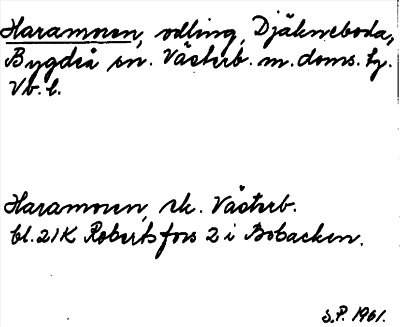 Haramoren, odling, Djäkneboda,
Bygdeå sn. Västerb. m. doms. tg.
Vb. l.
Haramoren, sk. Västerb.
bl. 21K Robertsfors 2 i Bobacken.
S.P. 1961.